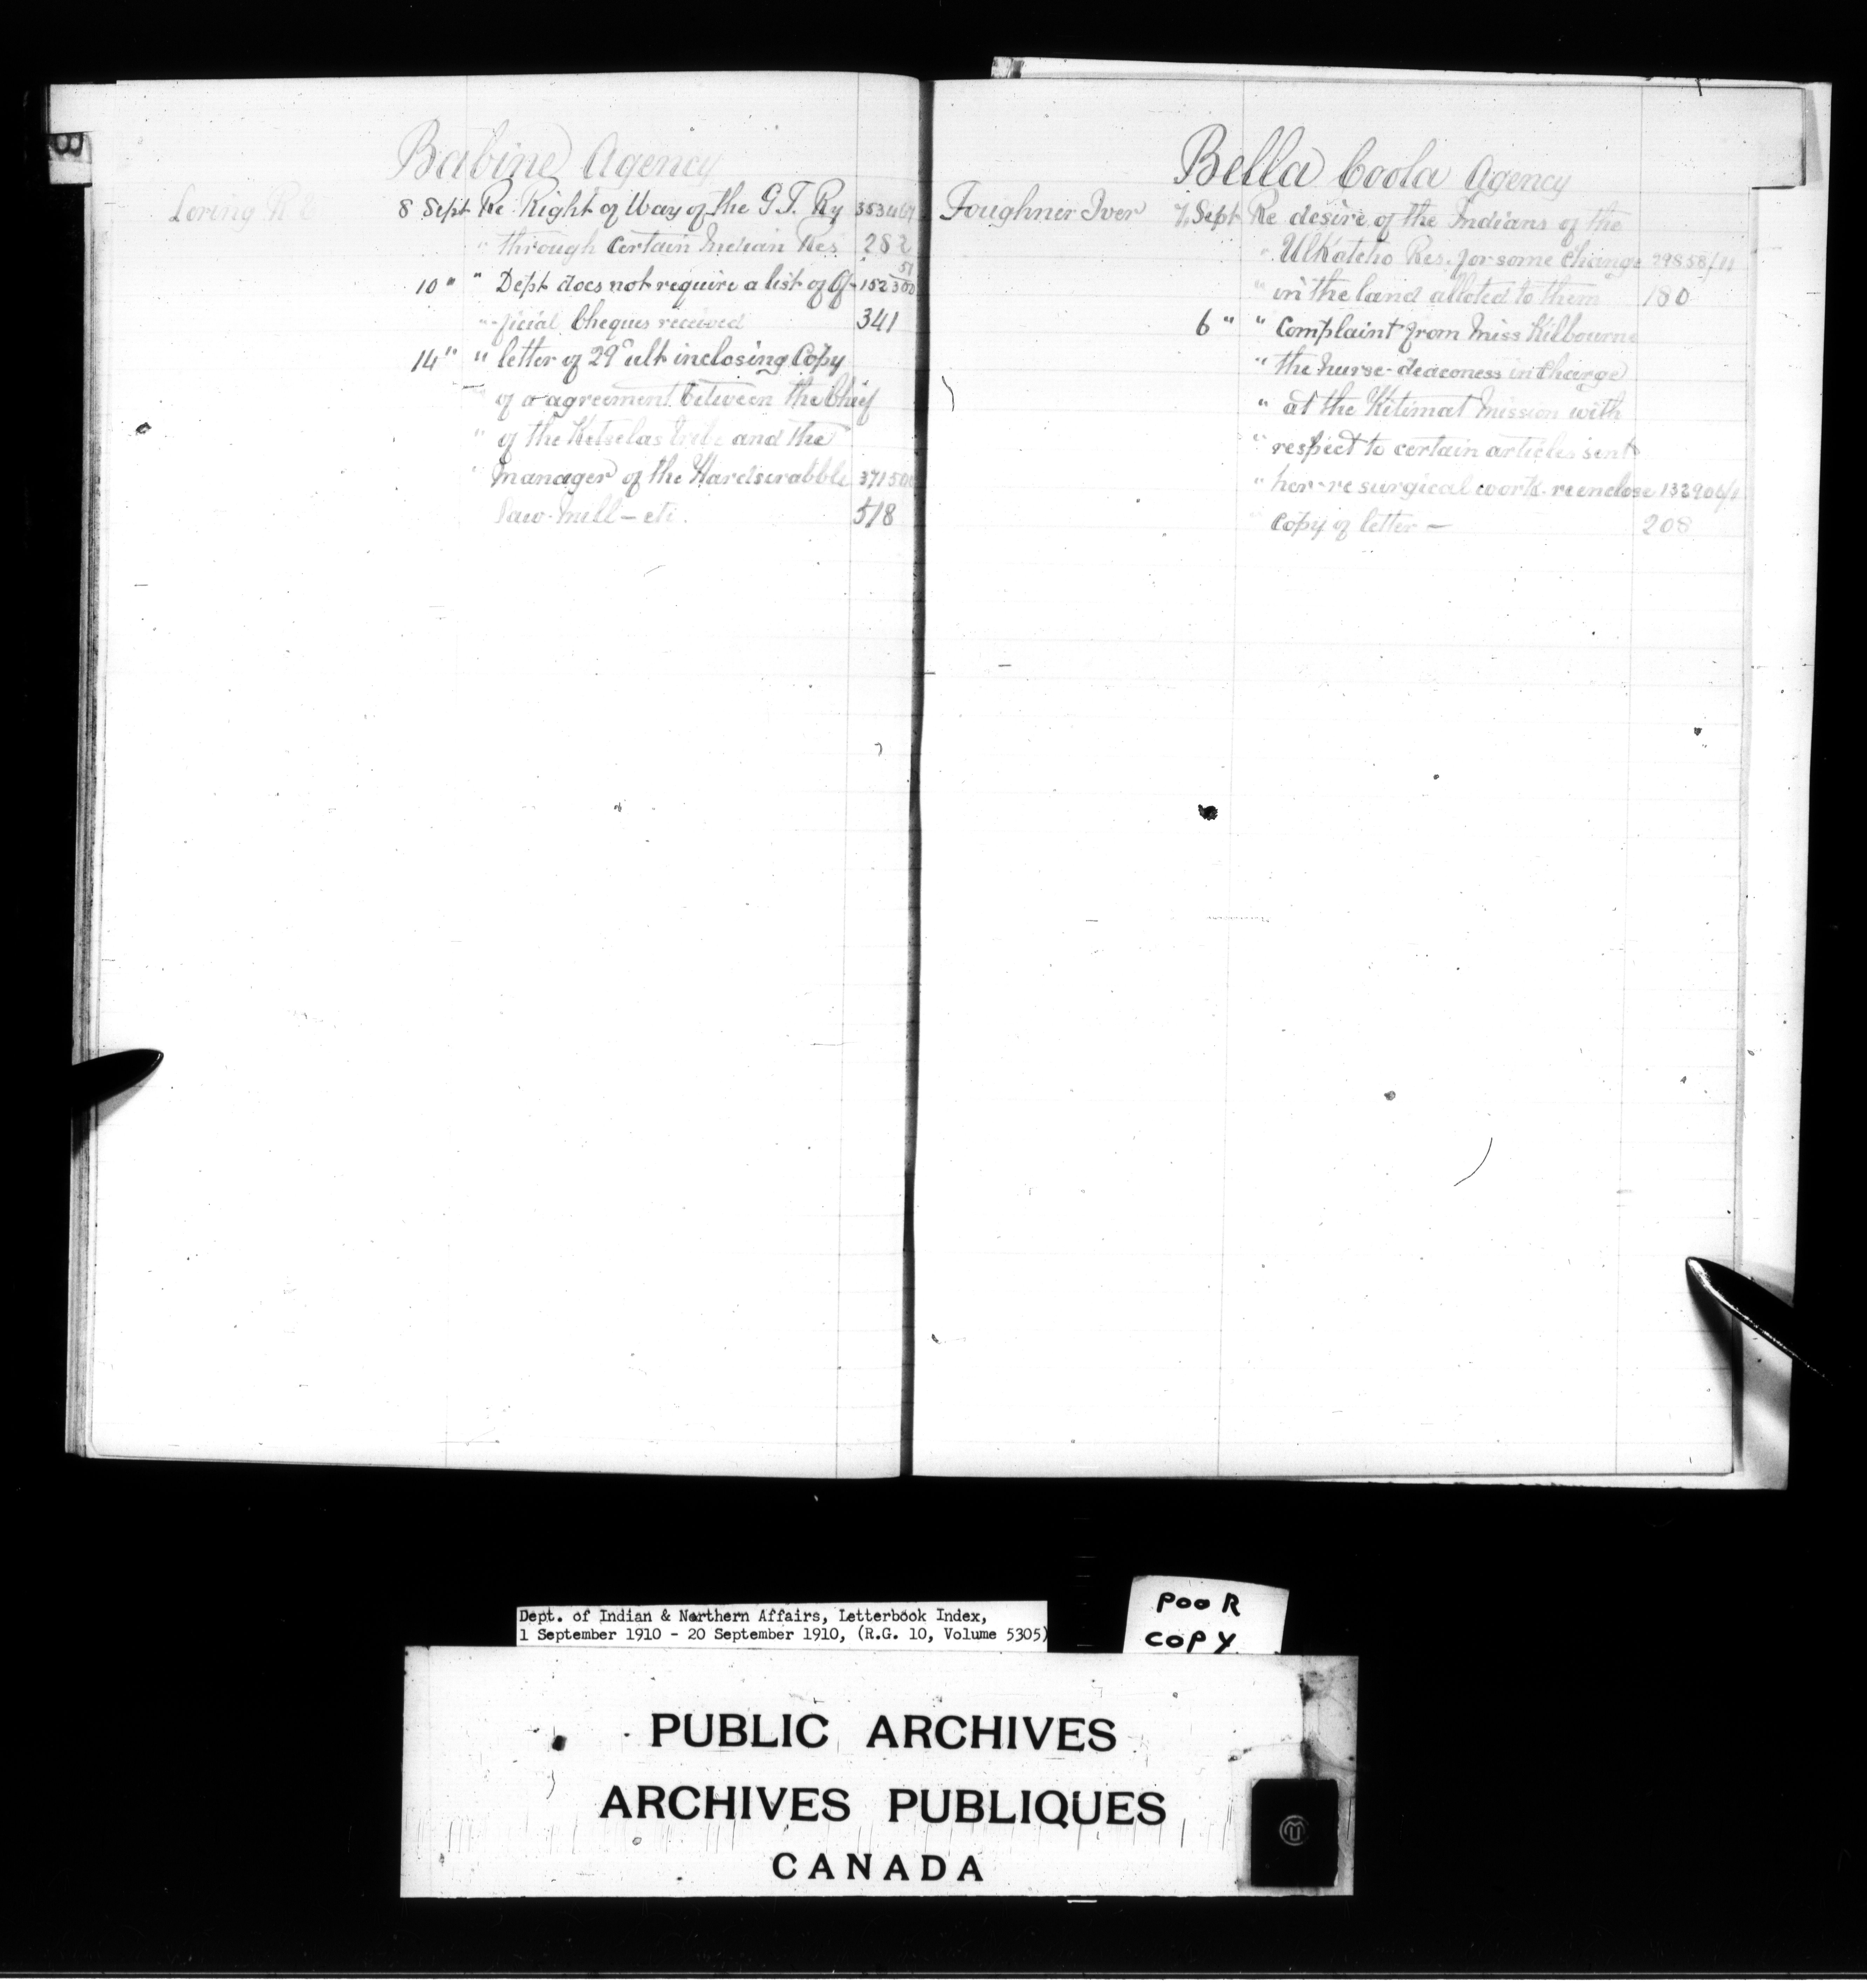 B
Babine Agency
Loring R E 8 Sept Re Right of Way of the G.T. Ry 353467
" through Certain Indian Res 282
10 " " Dept does not require a list of Of- 152300 51
" -ficial Cheques received 341
14 " " letter of 29º ult inclosing Copy
" of a agreement between the Chief
" of the Kitselas tribe and the
" manager of the Hardscrabble 371500
Saw-Mill — etc. 518
Bella Coola Agency
Foughner Iver 7 Sept Re desire of the Indians of the
" Ulkatcho Res. for some Change 29858/11
" in the land alloted to them 180
6 " " Complaint from Miss Kilbourne
" the nurse-deaconess in Charge
" at the Kitimat Mission with
" respect to certain articles sent
" her-re surgical work. re enclose 132906/
" Copy of letter — 208
Dept. of Indian & Northern Affairs, Letterbook Index,
1 September 1910 - 20 September 1910, (R.G. 10, Volume 5305)
POOR
COPY
PUBLIC ARCHIVES
ARCHIVES PUBLIQUES
CANADA